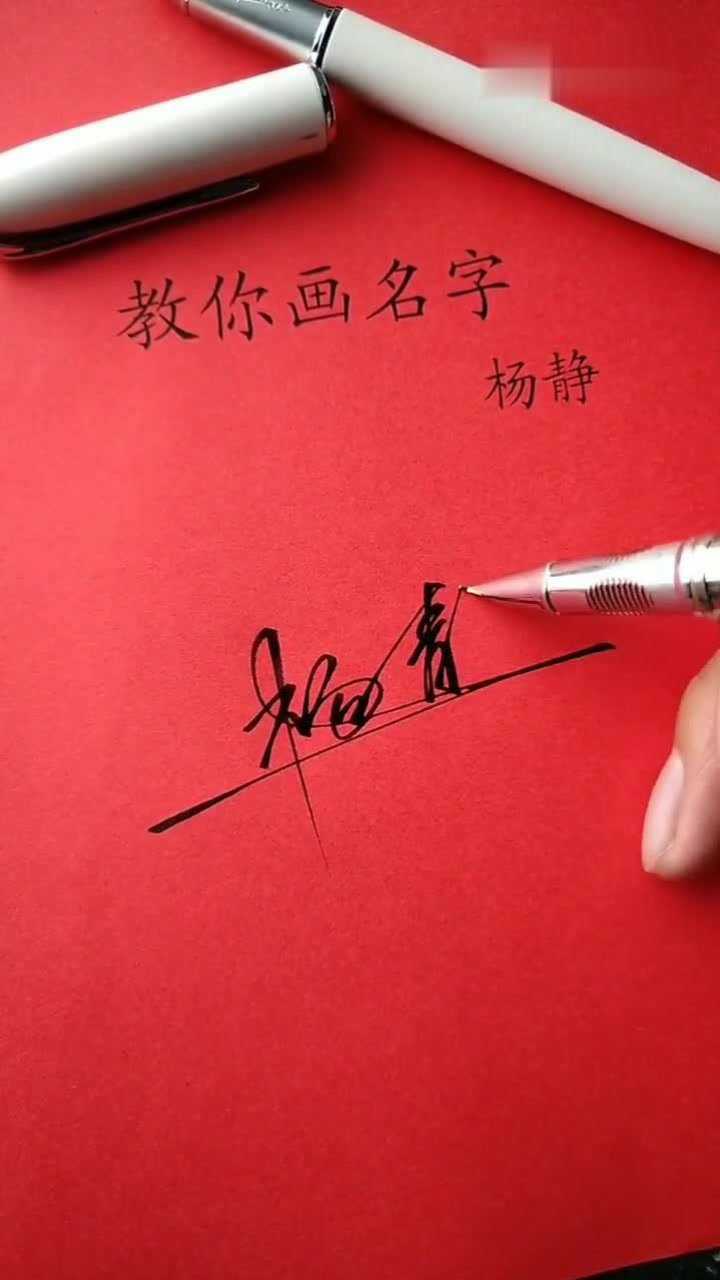 教你画名字
杨静